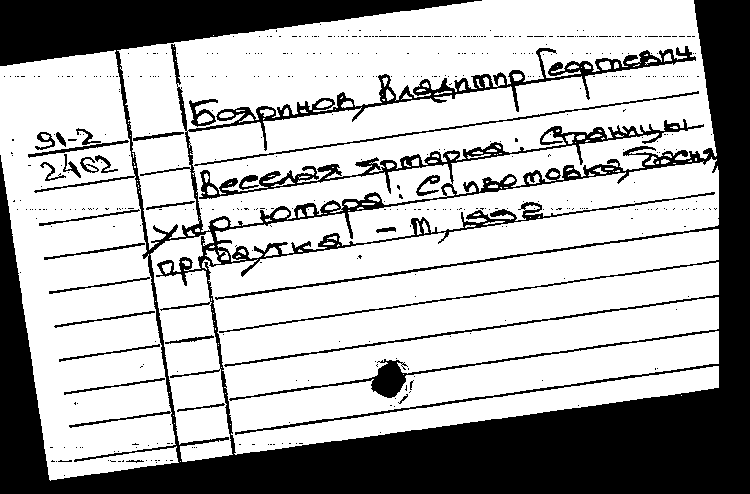 Бояринов, Владимир Георгиевич
91-2
2462
Веселая ярмарка: Страницы
укр. юмора: Спивомовка, басня,
прибаутка! - М., 1990.